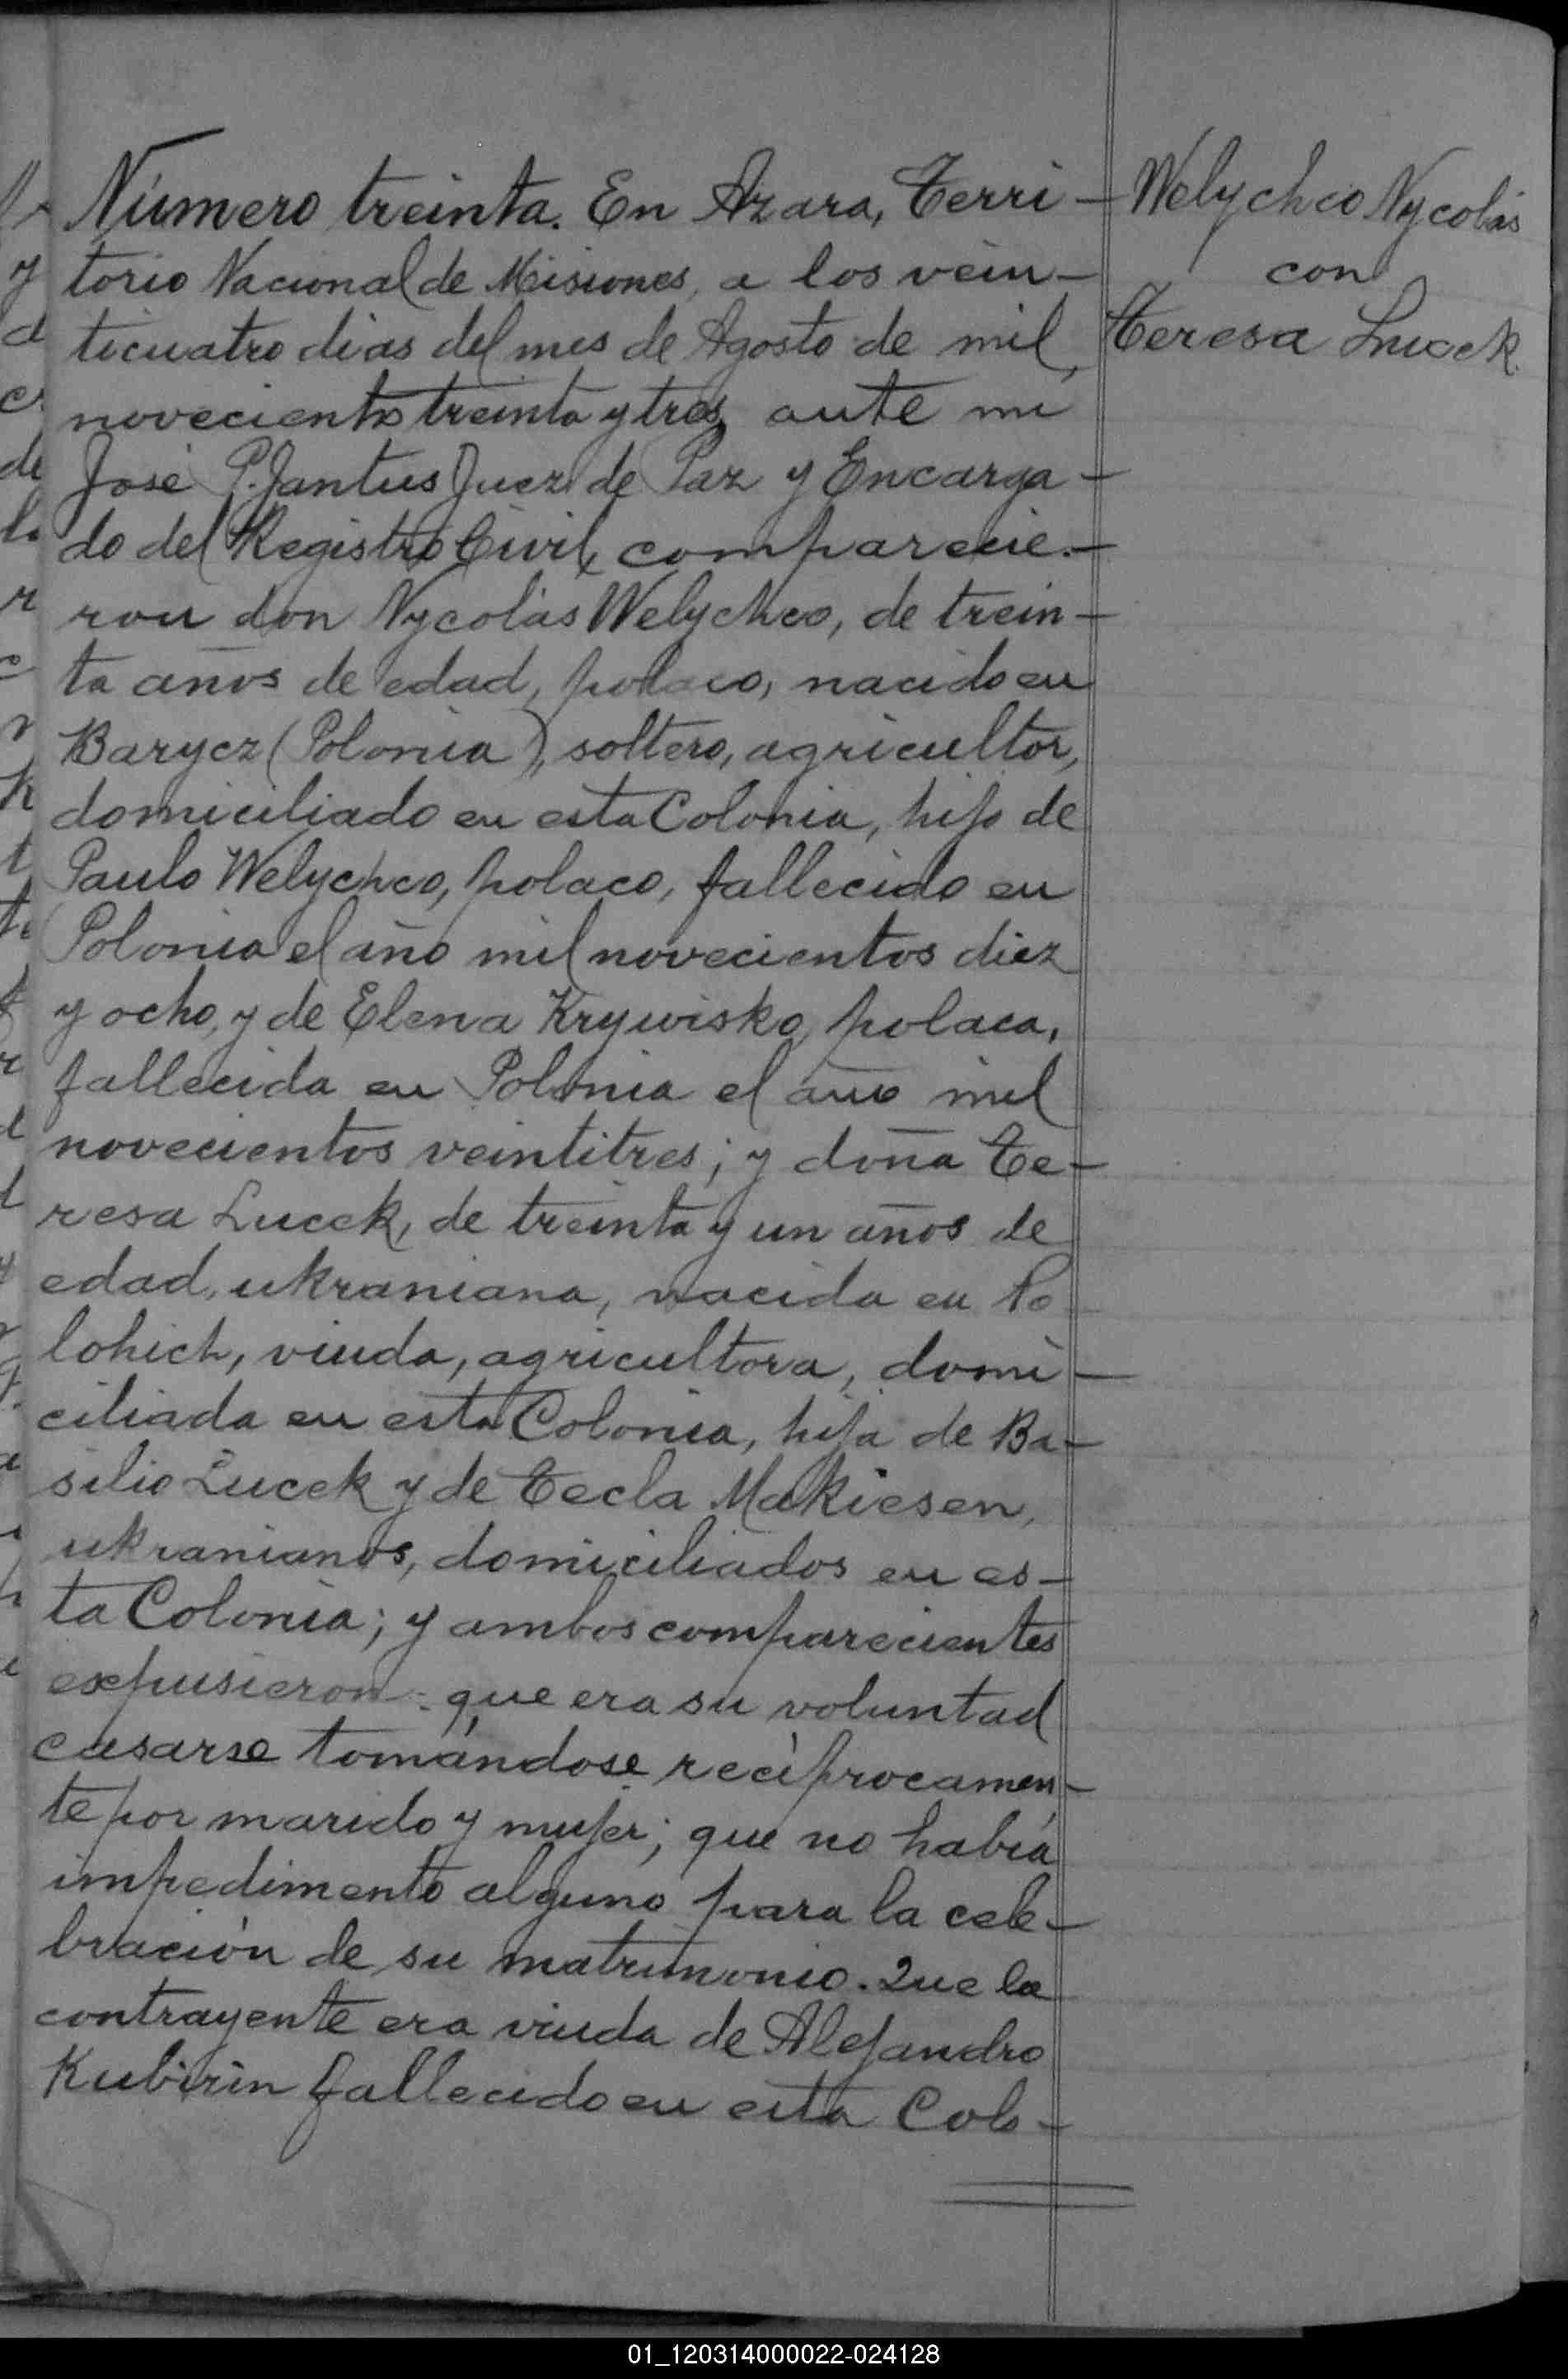 Número treinta. En Azara, Terri-
torio Nacional de Misiones, a los vein-
ticuatro dias del mes de Agosto de mil
novecientos treinta y tres, ante mi
José P. Jantus Juez de Paz y Encarga-
do del Registro Civil, comparecie-
ron don Nycolás Welychco, de trein-
ta años de edad, polaco, nacido en
Barycz (Polonia), soltero, agricultor,
domiciliado en esta Colonia, hijo de
Paulo Welychco, polaco, fallecido en
Polonia el año mil novecientos diez
y ocho, y de Elena Krywisko, polaca,
fallecida en Polonia el año mil
novecientos veintitres; y doña Te-
resa Lucek, de treinta y un años de
edad, ukraniana, nacida en To
lohich, viuda, agricultora, domi-
ciliada en esta Colonia, hija de Ba-
silio Lucek y de Tecla Makiesen,
ukranianos, domiciliados en es-
ta Colonia; y ambos comparecientes
expusieron: que era su voluntad
casarse tomándose recíprocamen-
te por marido y mujer; que no había
impedimento alguno para la cele-
bración de su matrimonio. Que la
contrayente era viuda de Alejandro
Kubirin fallecido en esta Colo-
Welychco Nycolás
con
Teresa Lucek.
01_120314000022-024128